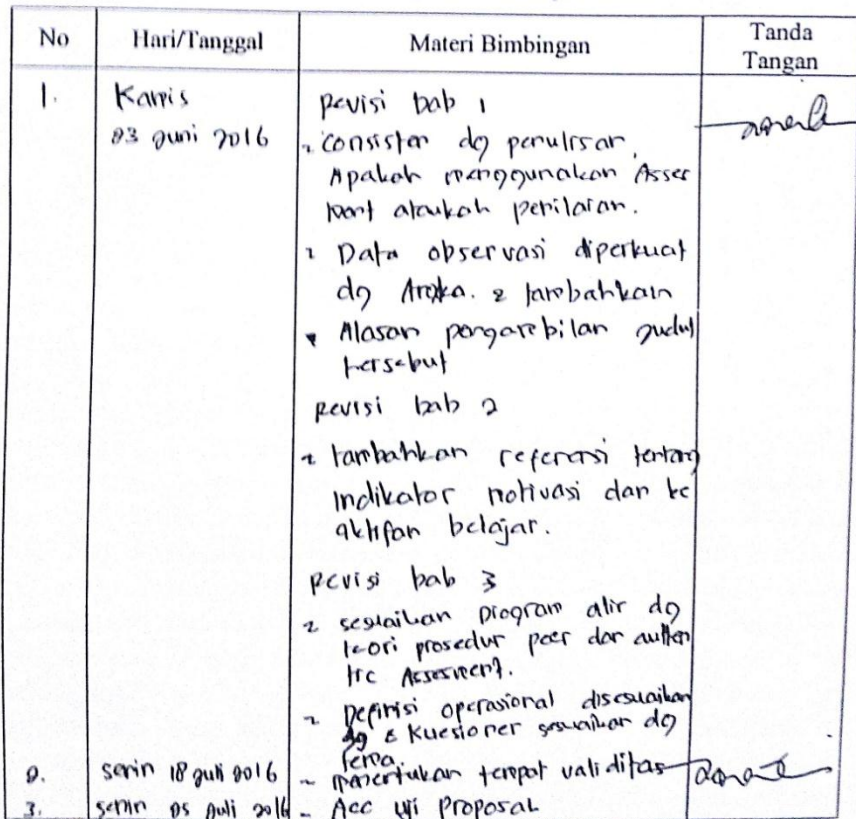 No Hari/Tanggal Materi Bimbingan Tanda Tangan
1. Kamis Revisi bab 1
03 Juni 2016 - Consisten dg penulisan,
Apakah menggunakan Asses
ment ataukah penilaian.
- Data observasi diperkuat
dg Angka. & tambahkan
- Alasan pengambilan judul
tersebut
Revisi bab 2
- tambahkan referensi tentang
Indikator motivasi dan ke
aktifan belajar.
Revisi bab 3
- sesuaikan program alir dg
teori prosedur peer dan authen
tic Assesment.
- Definisi operasional disesuaikan
dg & Kuesioner sesuaikan dg
2. Senin 18 Juli 2016 - menentukan tempat validitas
3. Senin 25 Juli 2016 - Acc uji Proposal